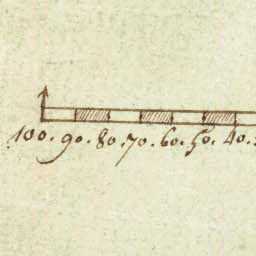 100. 90. 80. 70. 60. 50. 40.